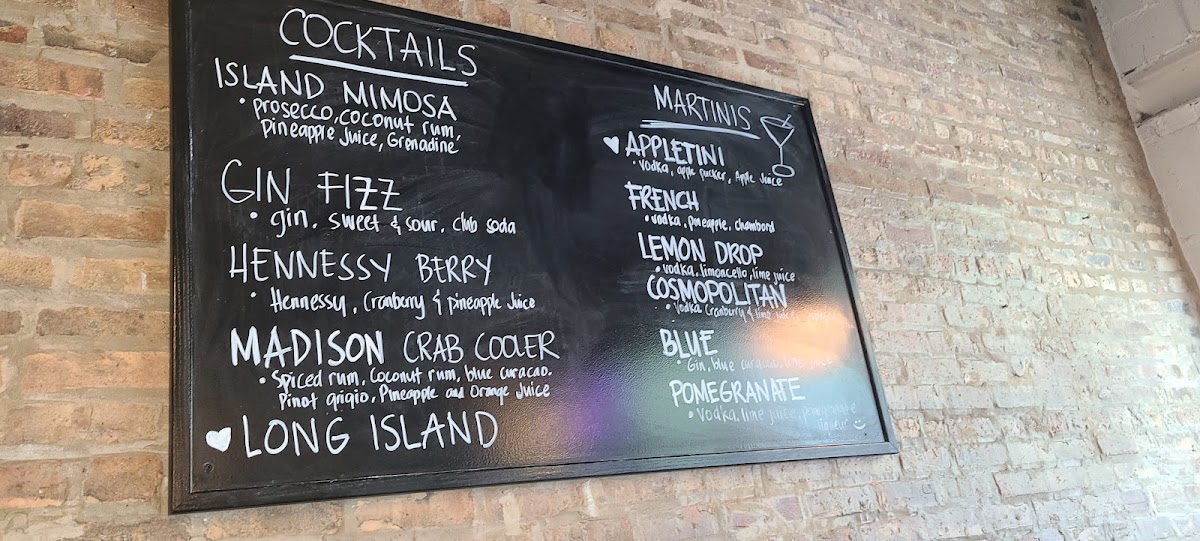 COCKTAILS
ISLAND MIMOSA
• prosecco, coconut rum,
Pineapple Juice, Grenadine
GIN FIZZ
• gin, sweet & sour, club soda
HENNESSY BERRY
• Hennessy, Cranberry & pineapple Juice
MADISON CRAB COOLER
• Spiced rum, Coconut rum, blue curacao,
Pinot grigio, Pineapple and Orange Juice
LONG ISLAND
MARTINIS
APPLETINI
• Vodka, apple pucker, Apple Juice
FRENCH
• vodka, pineapple, chambord
LEMON DROP
• vodka, limoncello, lime juice
COSMOPOLITAN
• Vodka Cranberry & lime
BLUE
• Gin, blue curacao,
POMEGRANATE
• Vodka, lime juice, pomegranate
liqueur